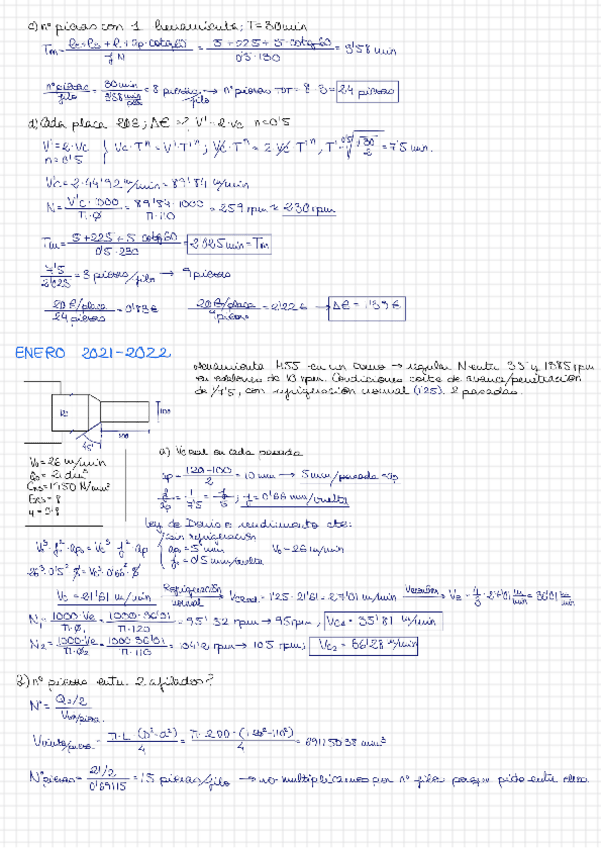 c) nº piezas con 1 herramienta; T=30min
Tm = (lc+ls+l+ap·cotg60)/(f·N) = (5+225+5·cotg60)/(0'5·130) = 3'58 min
nº piezas/filo = 30min/(3'58 min/pza) = 8 piezas/filo → nº piezas TOT = 8·3 = 24 piezas
d) Cada placa 20€; Δ€ =?, V'=2·Vc n=0'5
V'=2·Vc
n=0'5 } Vc·T^n = V'·T'^n ; Vc·T^n = 2·Vc·T'^n, T' = = 7'5 min.
V'c = 2·44'92 m/min = 89'84 m/min
N = (V'c·1000)/(π·Ø) = (89'84·1000)/(π·110) = 259 rpm ≈ 230 rpm
Tm = (5+225+5·cotg60)/(0'5·230) = 2'025 min = Tm
7'5/2'025 = 3 piezas/filo → 9 piezas
(20 €/placa)/(24 piezas) = 0'83€ (20 €/placa)/(9 piezas) = 2'22€ → Δ€ = 1'39€
ENERO 2021-2022
Herramienta HSS en un torno → regular N entre 35 y 1385 rpm
en escalones de 10 rpm. Condiciones corte de avance/penetración
de 1/7'5, con refrigeración normal (1'25). 2 pasadas.
45°
V0 = 26 m/min
Q0 = 21 dm³
a) Vc real en cada pasada
ap = (120-100)/2 = 10 mm → 5mm/pasada = ap
f/ap = 1/7'5 = f/5 ; f = 0'66 mm/vuelta
Ley de Denis o rendimiento cte:
V0³·f²·ap0 = Vc³·f²·ap { sin refrigeración
ap0 = 5 mm V0 = 26 m/min
f0 = 0'5 mm/vuelta
26³·0'5²·5 = Vc³·0'66²·5
Vc = 21'61 m/min → Refrigeración normal → Vc real = 1'25·21'61 = 27'01 m/min → Vc = 4/3·27'01 m/min = 36'01 m/min
N1 = (1000·Vc)/(π·Ø1) = (1000·36'01)/(π·120) = 95'52 rpm → 95 rpm, Vc1 = 35'81 m/min
N2 = (1000·Vc)/(π·Ø2) = (1000·36'01)/(π·110) = 104'2 rpm → 105 rpm; Vc2 = 36'28 m/min
2) nº piezas entre 2 afilados?
Nº = (Q0/2)/(Vviruta/pieza)
Vviruta/pieza = π·L·(D²-d²)/4 = π·200·(120²-110²)/4 = mm³
Nº piezas = (21/2)/(0'69115) = 15 piezas/filo → no multiplicamos por nº filos porque pide entre afilados.